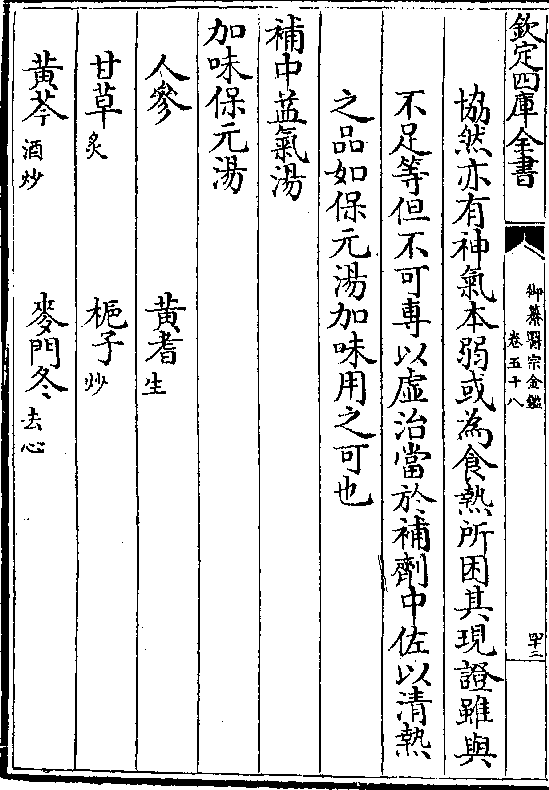 欽定四庫全書
御纂醫宗金鑑
卷五十八
四十二
恊然亦有神氣本弱或為食熱所困其現證雖與
不足等但不可專以虚治當於補劑中佐以清熱
之品如保元湯加味用之可也
補中益氣湯
加味保元湯
人參
黃耆生
甘草炙
梔子炒
黃芩酒炒
麥門冬去心